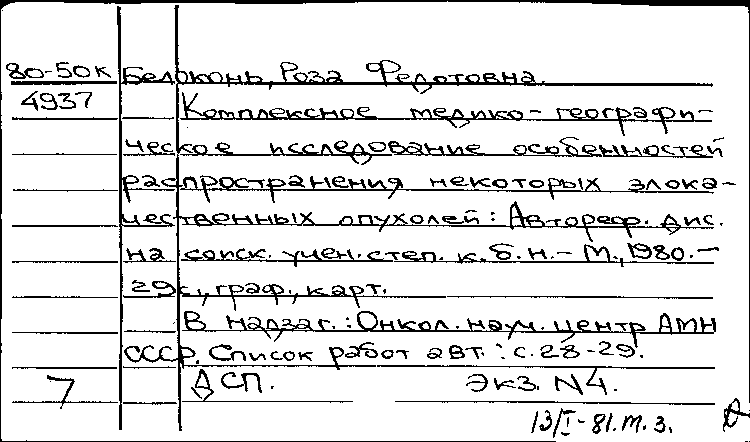 80-50к Белоконь, Роза Федотовна.
4937 Комплексное медико-географи-
ческое исследование особенностей
распространения некоторых злока-
чественных опухолей: Автореф. дис.
на соиск. учен. степ. к. б. н. - М., 1980. -
29с., граф., карт.
В надзаг.: Онкол. науч. центр АМН
СССР. Список работ авт.: с. 28-29.
7 ДСП. Экз. N4.
13/I-81. т. 3.